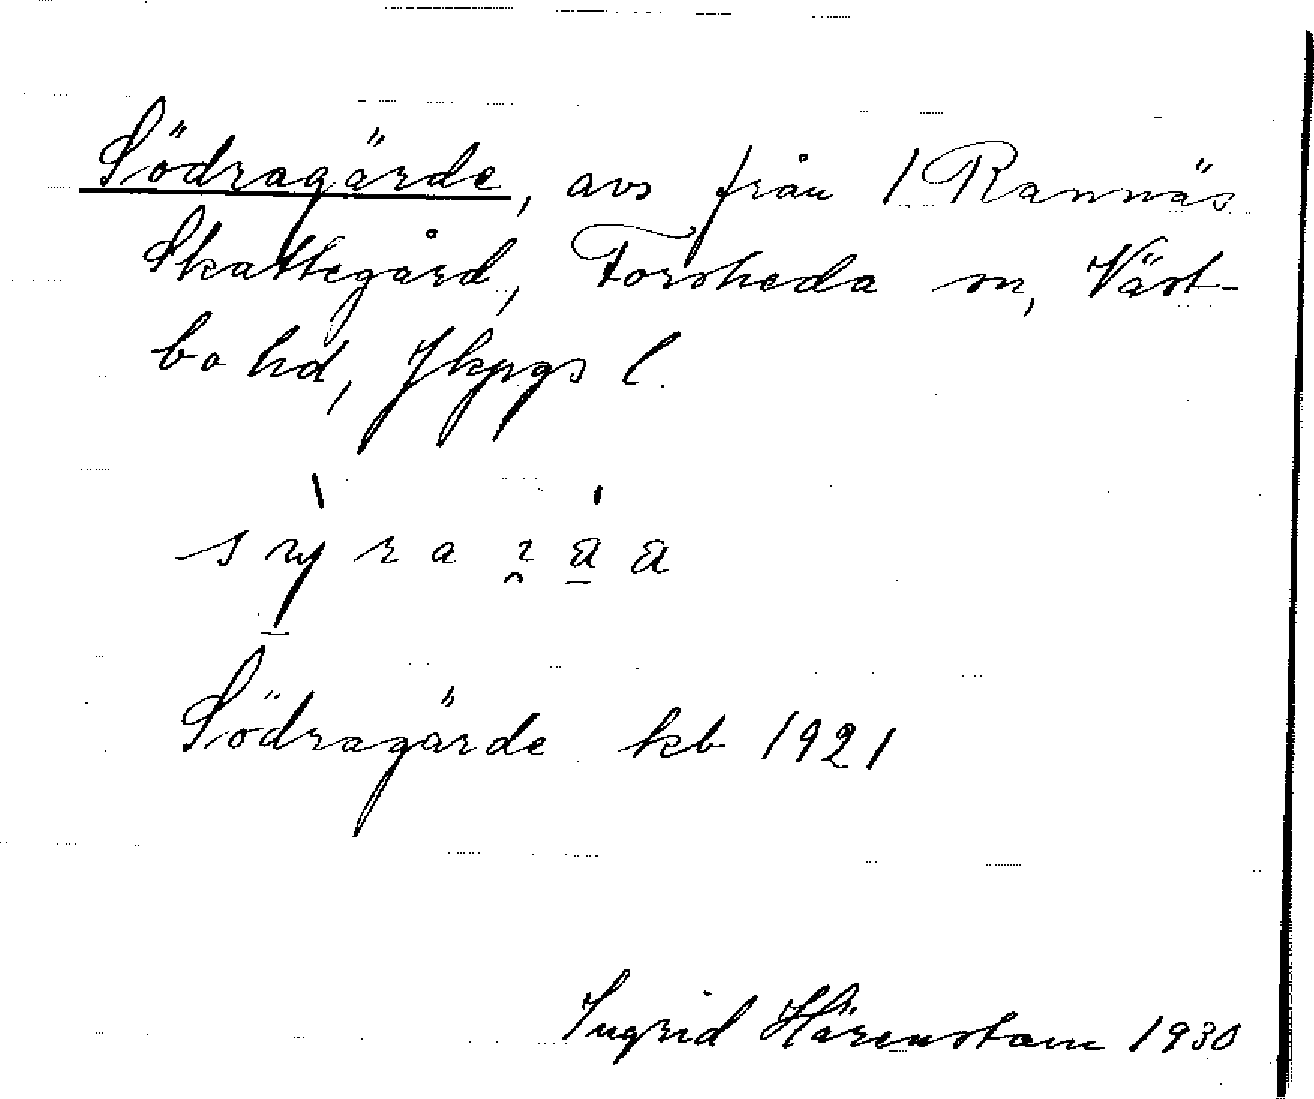 Södragärde, avs från 1 Rannäs
Skattegård, Forsheda sn, Väst-
bo hd, Jkpgs l.
Södragärde kb 1921
Ingrid Härenstam 1930